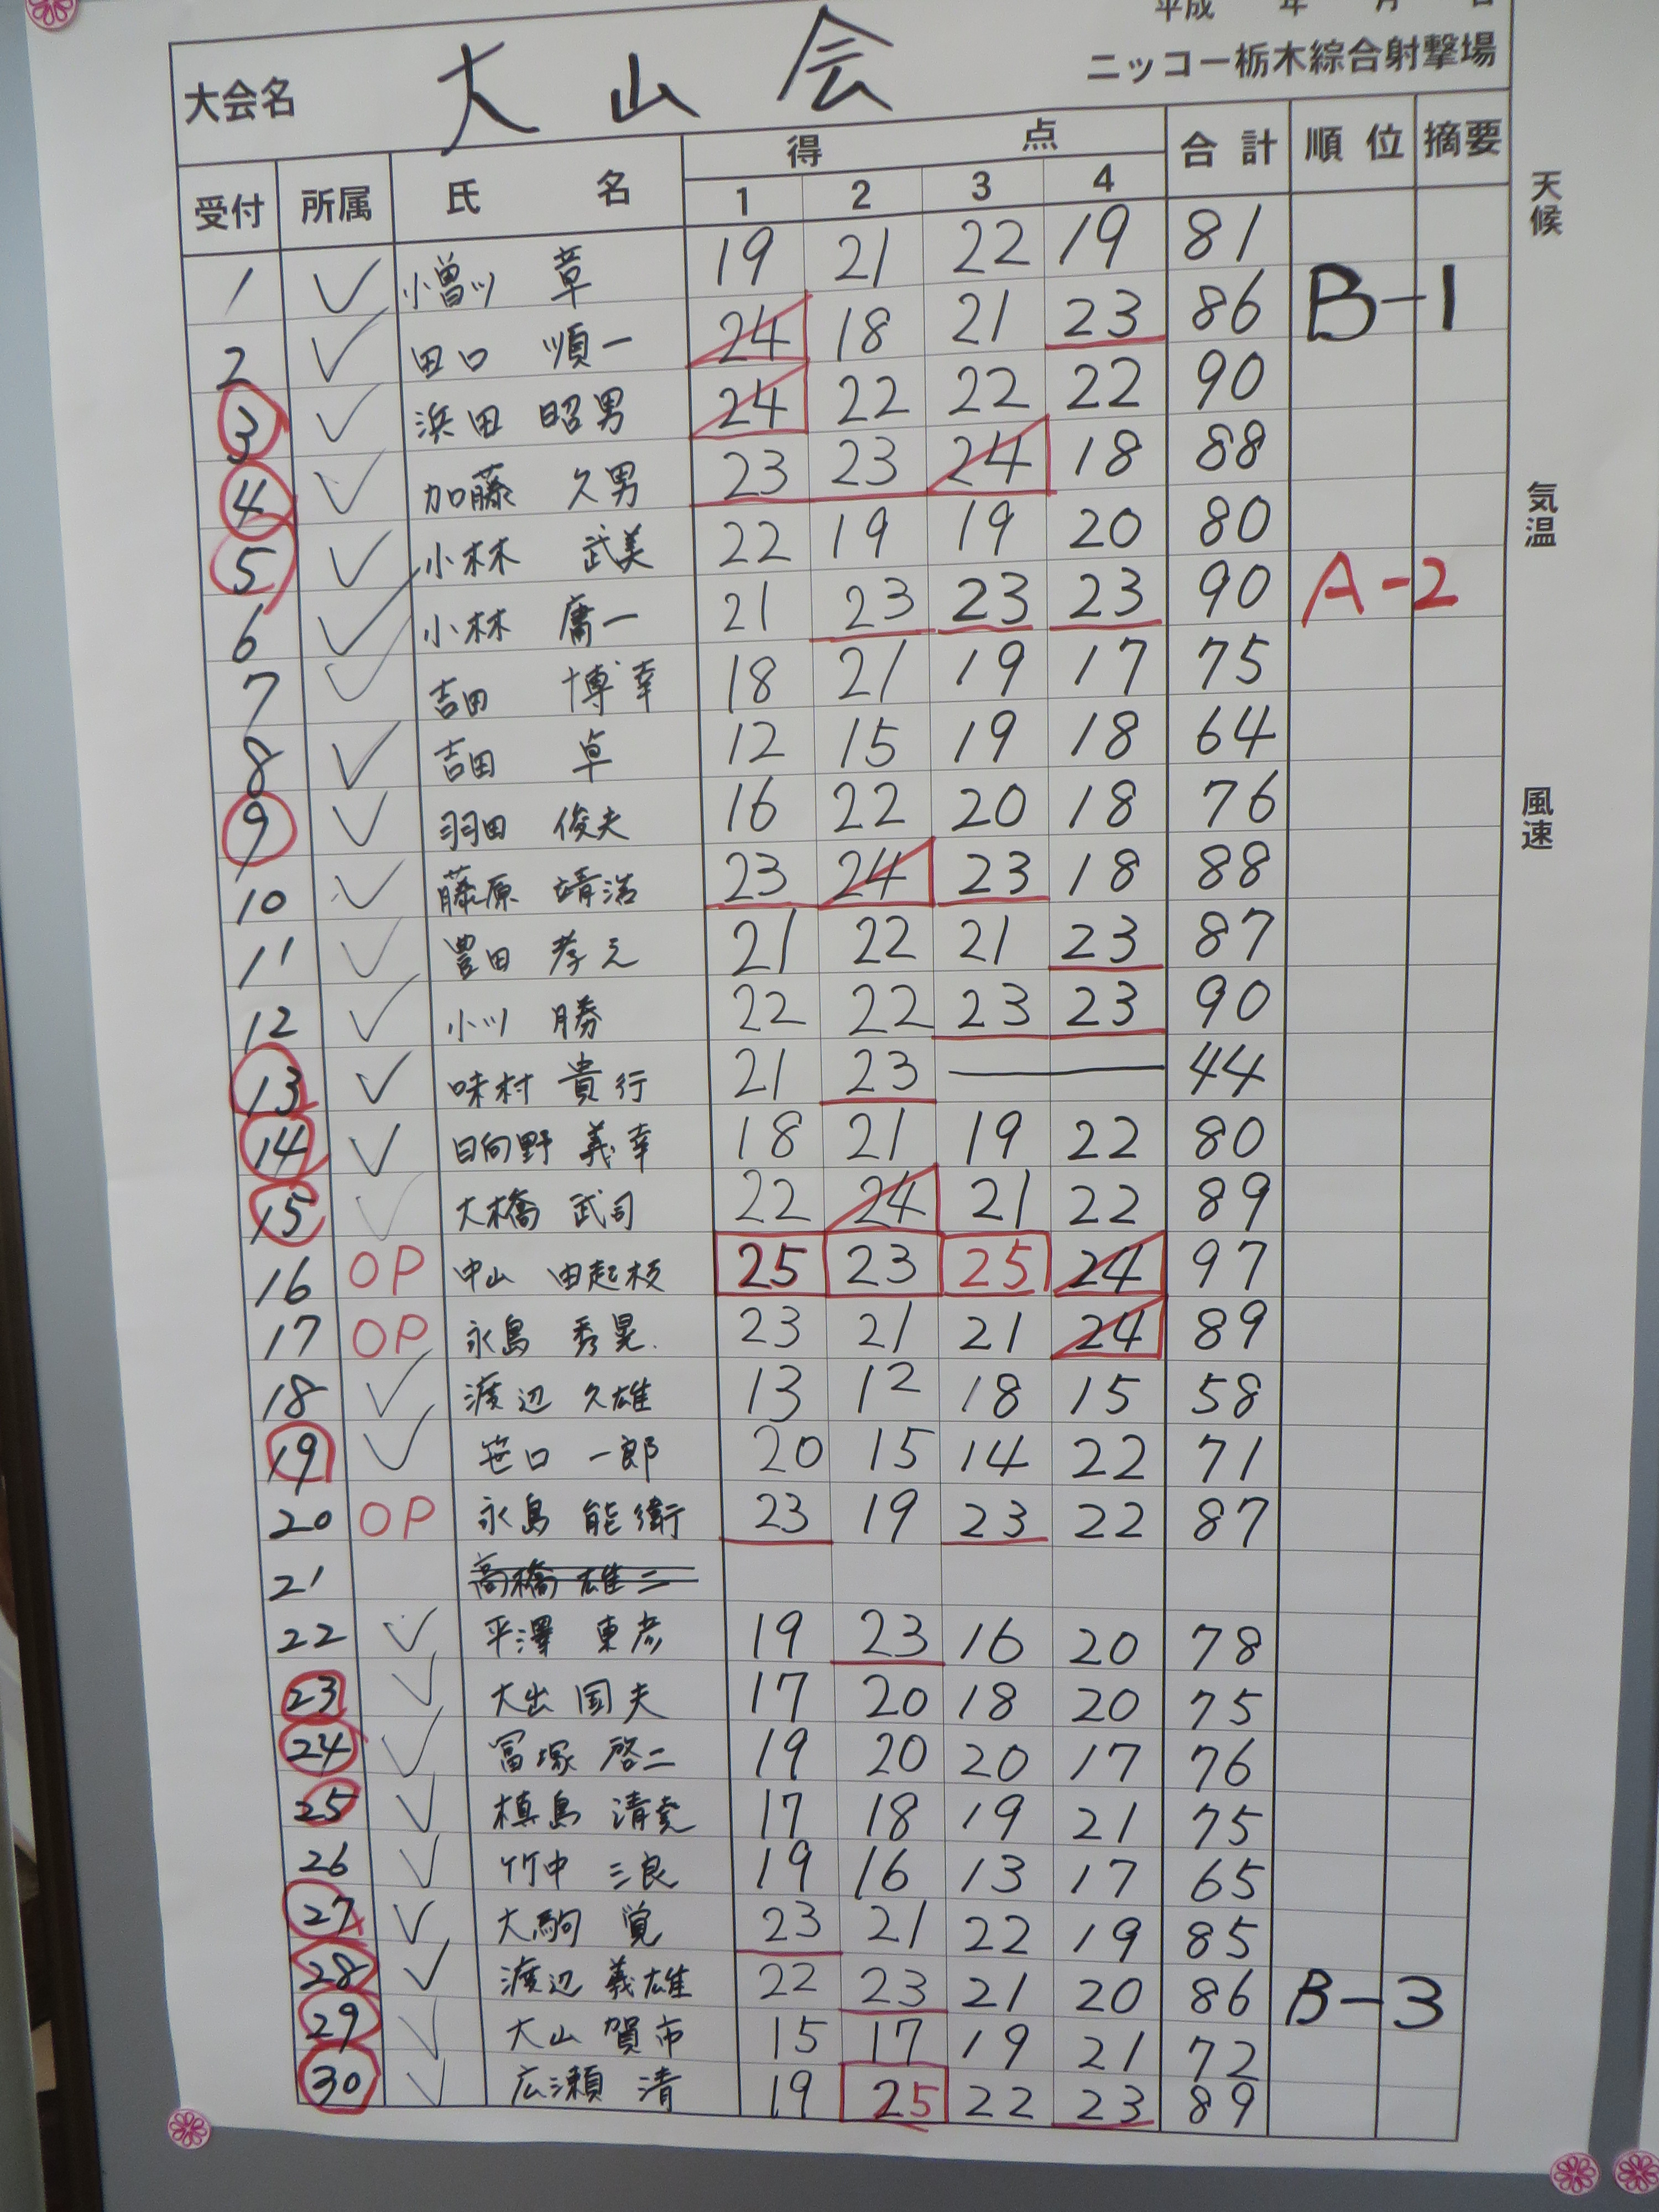 平成 年 月 日
大会名 大山会 ニッコー栃木綜合射撃場
受付 所属 氏名 得点 1 2 3 4 合計 順位 摘要
1 小曽川 章 19 21 22 19 81
2 田口 順一 24 18 21 23 86 B-1
3 浜田 昭男 24 22 22 22 90
4 加藤 久男 23 23 24 18 88
5 小林 武美 22 19 19 20 80
6 小林 庸一 21 23 23 23 90 A-2
7 吉田 博幸 18 21 19 17 75
8 吉田 卓 12 15 19 18 64
9 羽田 俊夫 16 22 20 18 76
10 藤原 靖浩 23 24 23 18 88
11 豊田 孝元 21 22 21 23 87
12 小川 勝 22 22 23 23 90
13 味村 貴行 21 23 44
14 日向野 義幸 18 21 19 22 80
15 大橋 武司 22 24 21 22 89
16 OP 中山 由起枝 25 23 25 24 97
17 OP 永島 秀晃 23 21 21 24 89
18 渡辺 久雄 13 12 18 15 58
19 笹口 一郎 20 15 14 22 71
20 OP 永島 能衛 23 19 23 22 87
21 高橋 雄二
22 平澤 東彦 19 23 16 20 78
23 大出 国夫 17 20 18 20 75
24 冨塚 啓二 19 20 20 17 76
25 槙島 清 17 18 19 21 75
26 竹中 三良 19 16 13 17 65
27 大駒 覚 23 21 22 19 85
28 渡辺 義雄 22 23 21 20 86 B-3
29 大山 賀市 15 17 19 21 72
30 広瀬 清 19 25 22 23 89
天候
気温
風速